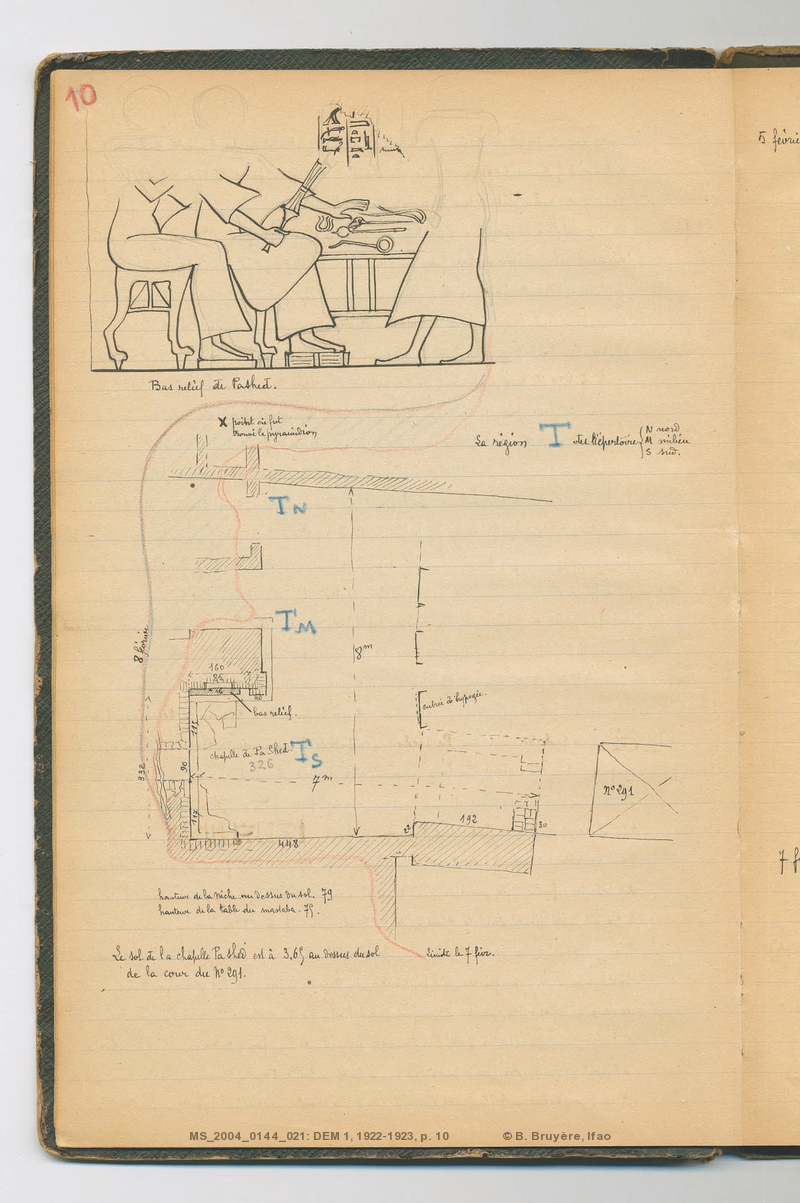 10
5 févrie
Bas relief de Pashed.
X point où fut
trouvé le pyramidion
La région T des Répertoires
N nord
M milieu
S sud.
TN
TM
8 février
8m
160
25
46
40
bas relief.
entrée d'hypogée.
115
chapelle de PaShed.
326
TS
332
90
7m
N° 291
117
192
30
448
hauteur de la niche au dessus du sol. 79
hauteur de la table du mastaba. 75.
7 f
Le sol de la chapelle PaShed est à 3,65 au dessus du sol
de la cour du N° 291.
limite le 7 févr.
MS_2004_0144_021: DEM 1, 1922-1923, p. 10
© B. Bruyère, Ifao